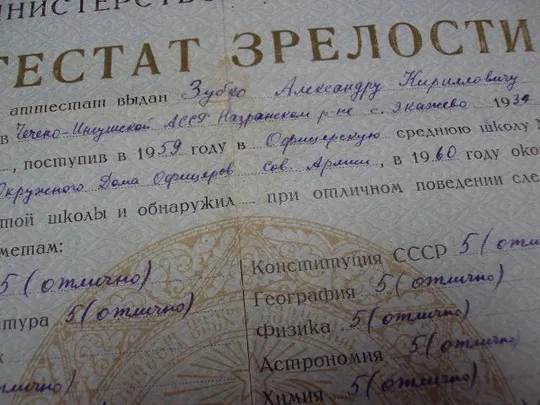 МИНИСТЕРСТВО
АТТЕСТАТ ЗРЕЛОСТИ
аттестат выдан Зубко Александру Кирилловичу
в Чечено-Ингушской АССР Назрановском р-не с. Экажево 1934
, поступив в 1959 году в Офицерскую среднюю школу
Окружного Дома Офицеров Сов. Армии, в 1960 году око
той школы и обнаружил при отличном поведении сле
метам:
5 (отлично)
тура 5 (отлично)
отлично)
Конституция СССР 5 (отли
География 5 (отлично)
Физика 5 (отлично)
Астрономия 5 (отлично)
Химия 5 (отлично)